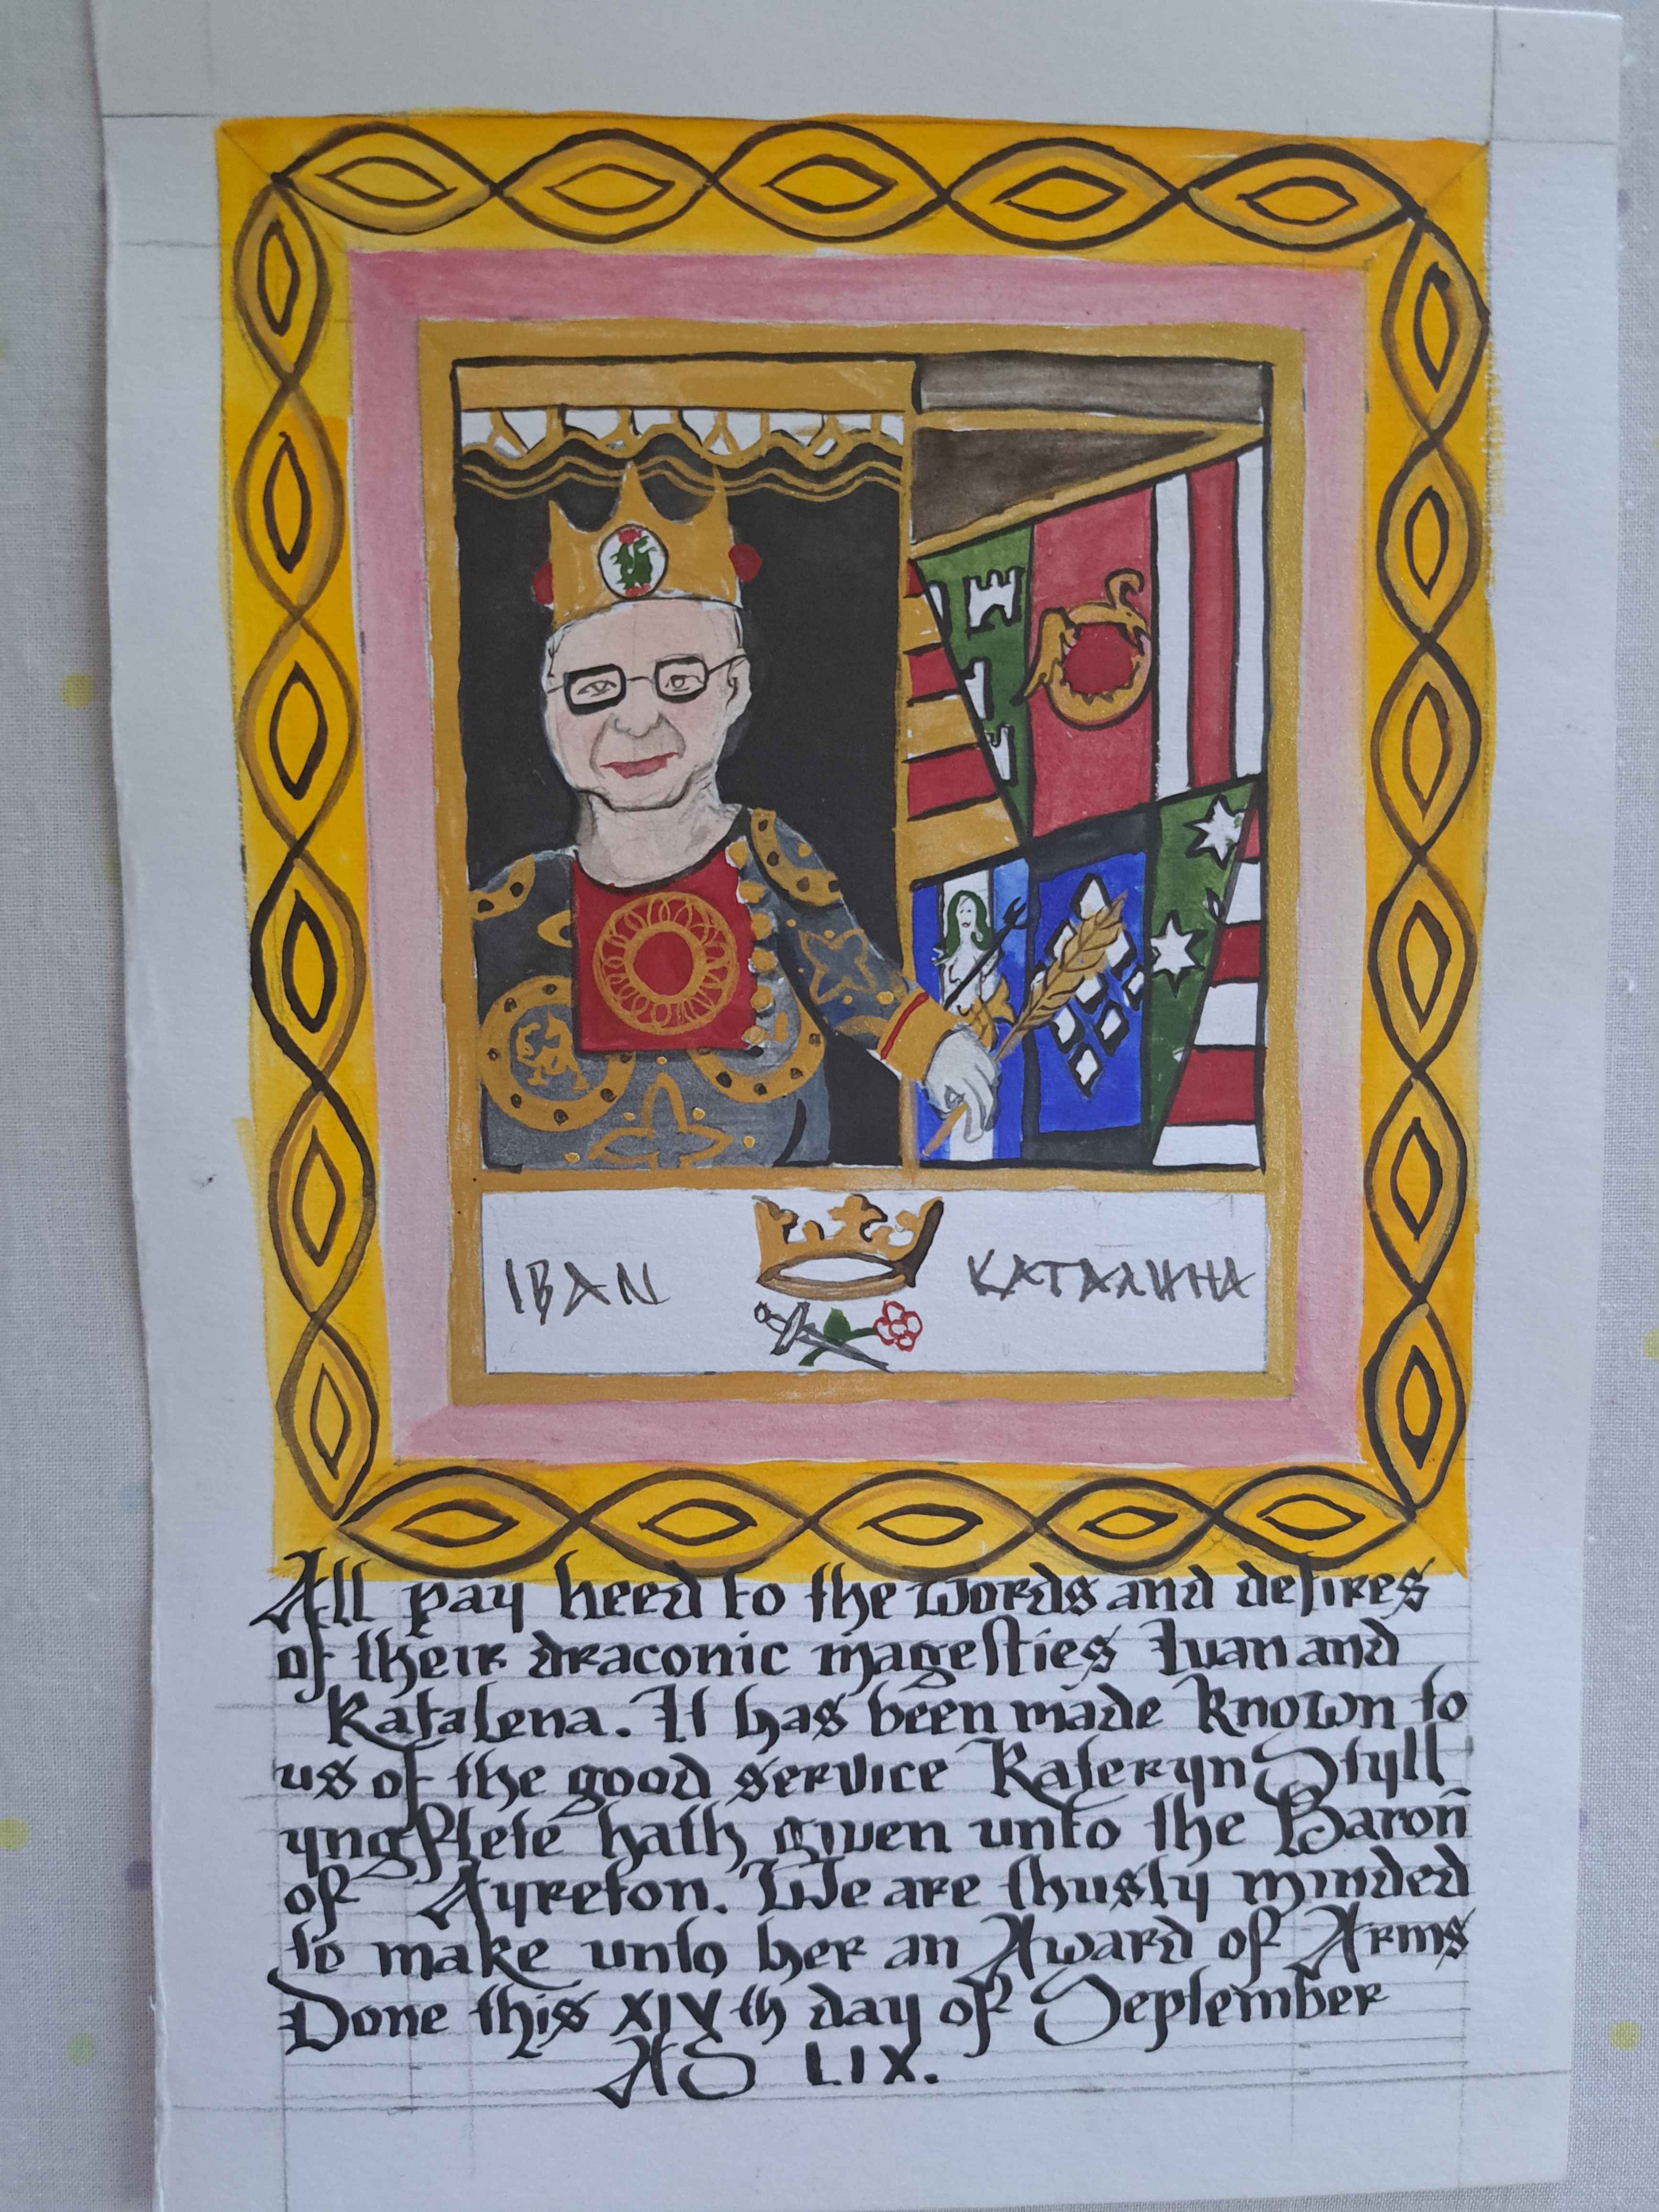 ІВАN
КАТАЛИНА
All pay heed to the words and deſires
of their draconic mageſties Ivan and
Katalena. It has been made known to
us of the good service Kateryn Styll
yngflete hath given unto the Baroñ
of Ayreton. We are thusly minded
to make unto her an Award of Arms
Done this XIVth day of September
AS LIX.